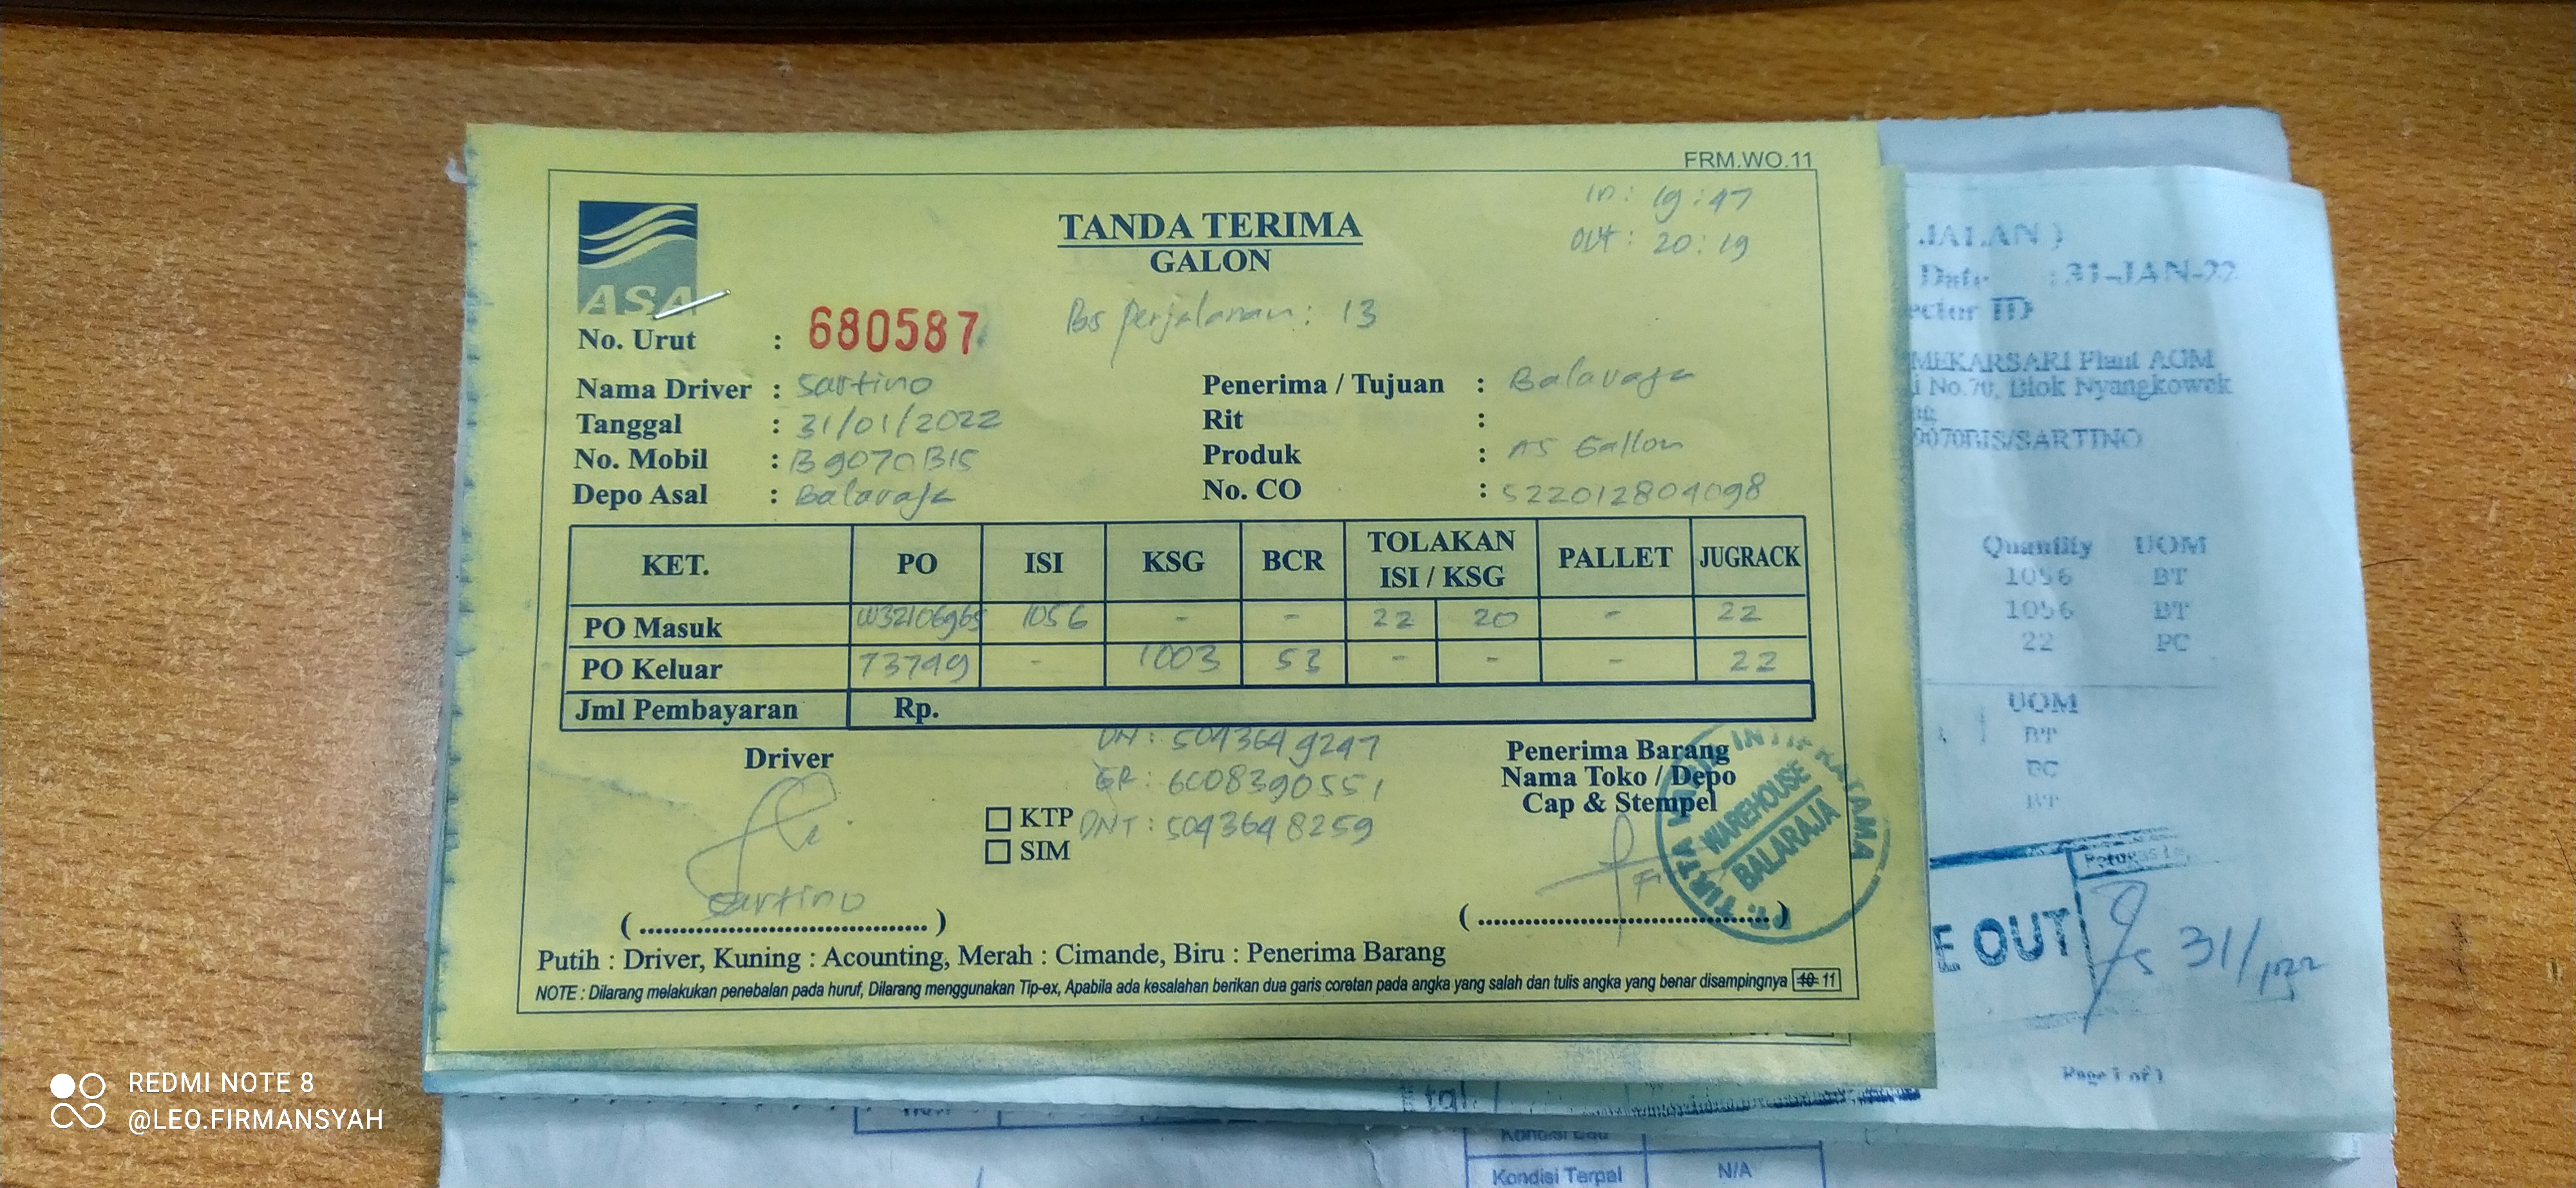 FRM.WO.11
In : 19:47
OUT : 20:19
ASA
TANDA TERIMA
GALON
Bs Perjalanan : 13
No. Urut : 680587
Nama Driver : Sartino
Tanggal : 31/01/2022
No. Mobil : B 9070 BIS
Depo Asal : Balaraja
Penerima / Tujuan : Balaraja
Rit :
Produk : AS Gallon
No. CO : 522012804098
KET. PO ISI KSG BCR TOLAKAN ISI / KSG PALLET JUGRACK
PO Masuk W32106965 1056 - - 22 20 - 22
PO Keluar 73749 - 1003 53 - - - 22
Jml Pembayaran Rp.
DN : 5043649247
GR : 6008390551
DNT : 5043648259
Driver
Sartino
(..............................)
KTP
SIM
Penerima Barang
Nama Toko / Depo
Cap & Stempel
(..............................)
WAREHOUSE
BALARAJA
PT. TIRTA
Putih : Driver, Kuning : Acounting, Merah : Cimande, Biru : Penerima Barang
NOTE : Dilarang melakukan penebalan pada huruf, Dilarang menggunakan Tip-ex, Apabila ada kesalahan berikan dua garis coretan pada angka yang salah dan tulis angka yang benar disampingnya 10 11
JALAN )
Date : 31-JAN-22
ector ID
MEKARSARI Plant AGM
No.70, Blok Nyangkowek
9070BIS/SARTINO
Quantity UOM
1056 BT
1056 BT
22 PC
UOM
BT
PC
BT
Petugas
E OUT
31/
Page 1 of 1
tgl.
Kondisi Terpal N/A
REDMI NOTE 8
@LEO.FIRMANSYAH